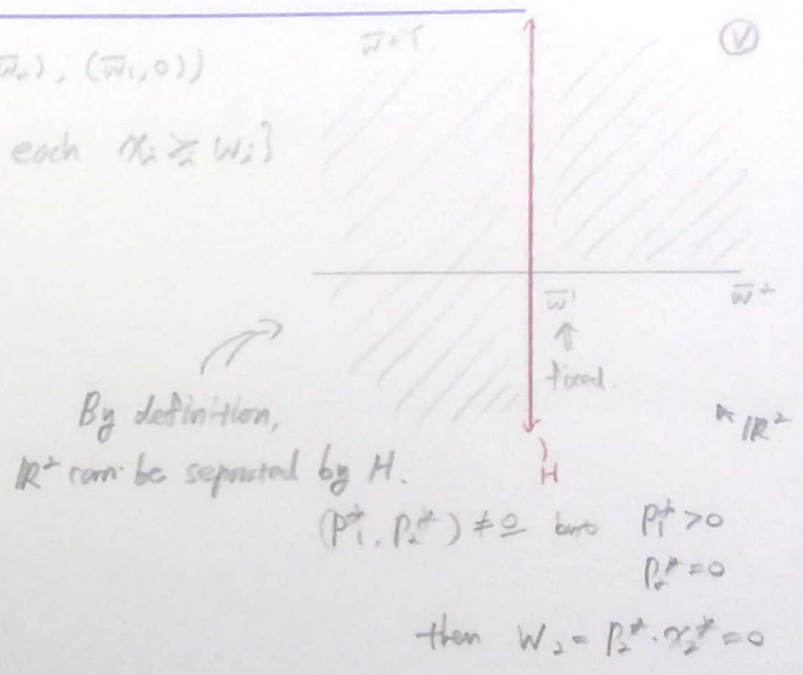 w̄₂), (w̄₁,0))
w̄+T
Ⓥ
each xᵢ ≿ᵢ wᵢ}
w̄¹
w̄²
⇑
fixed
By definition,
ℝ² can be separated by H.
H
ℝ²
(P₁*, P₂*) ≠ 0 but P₁* > 0
P₂* = 0
then W₂ = P₂* · x₂* = 0